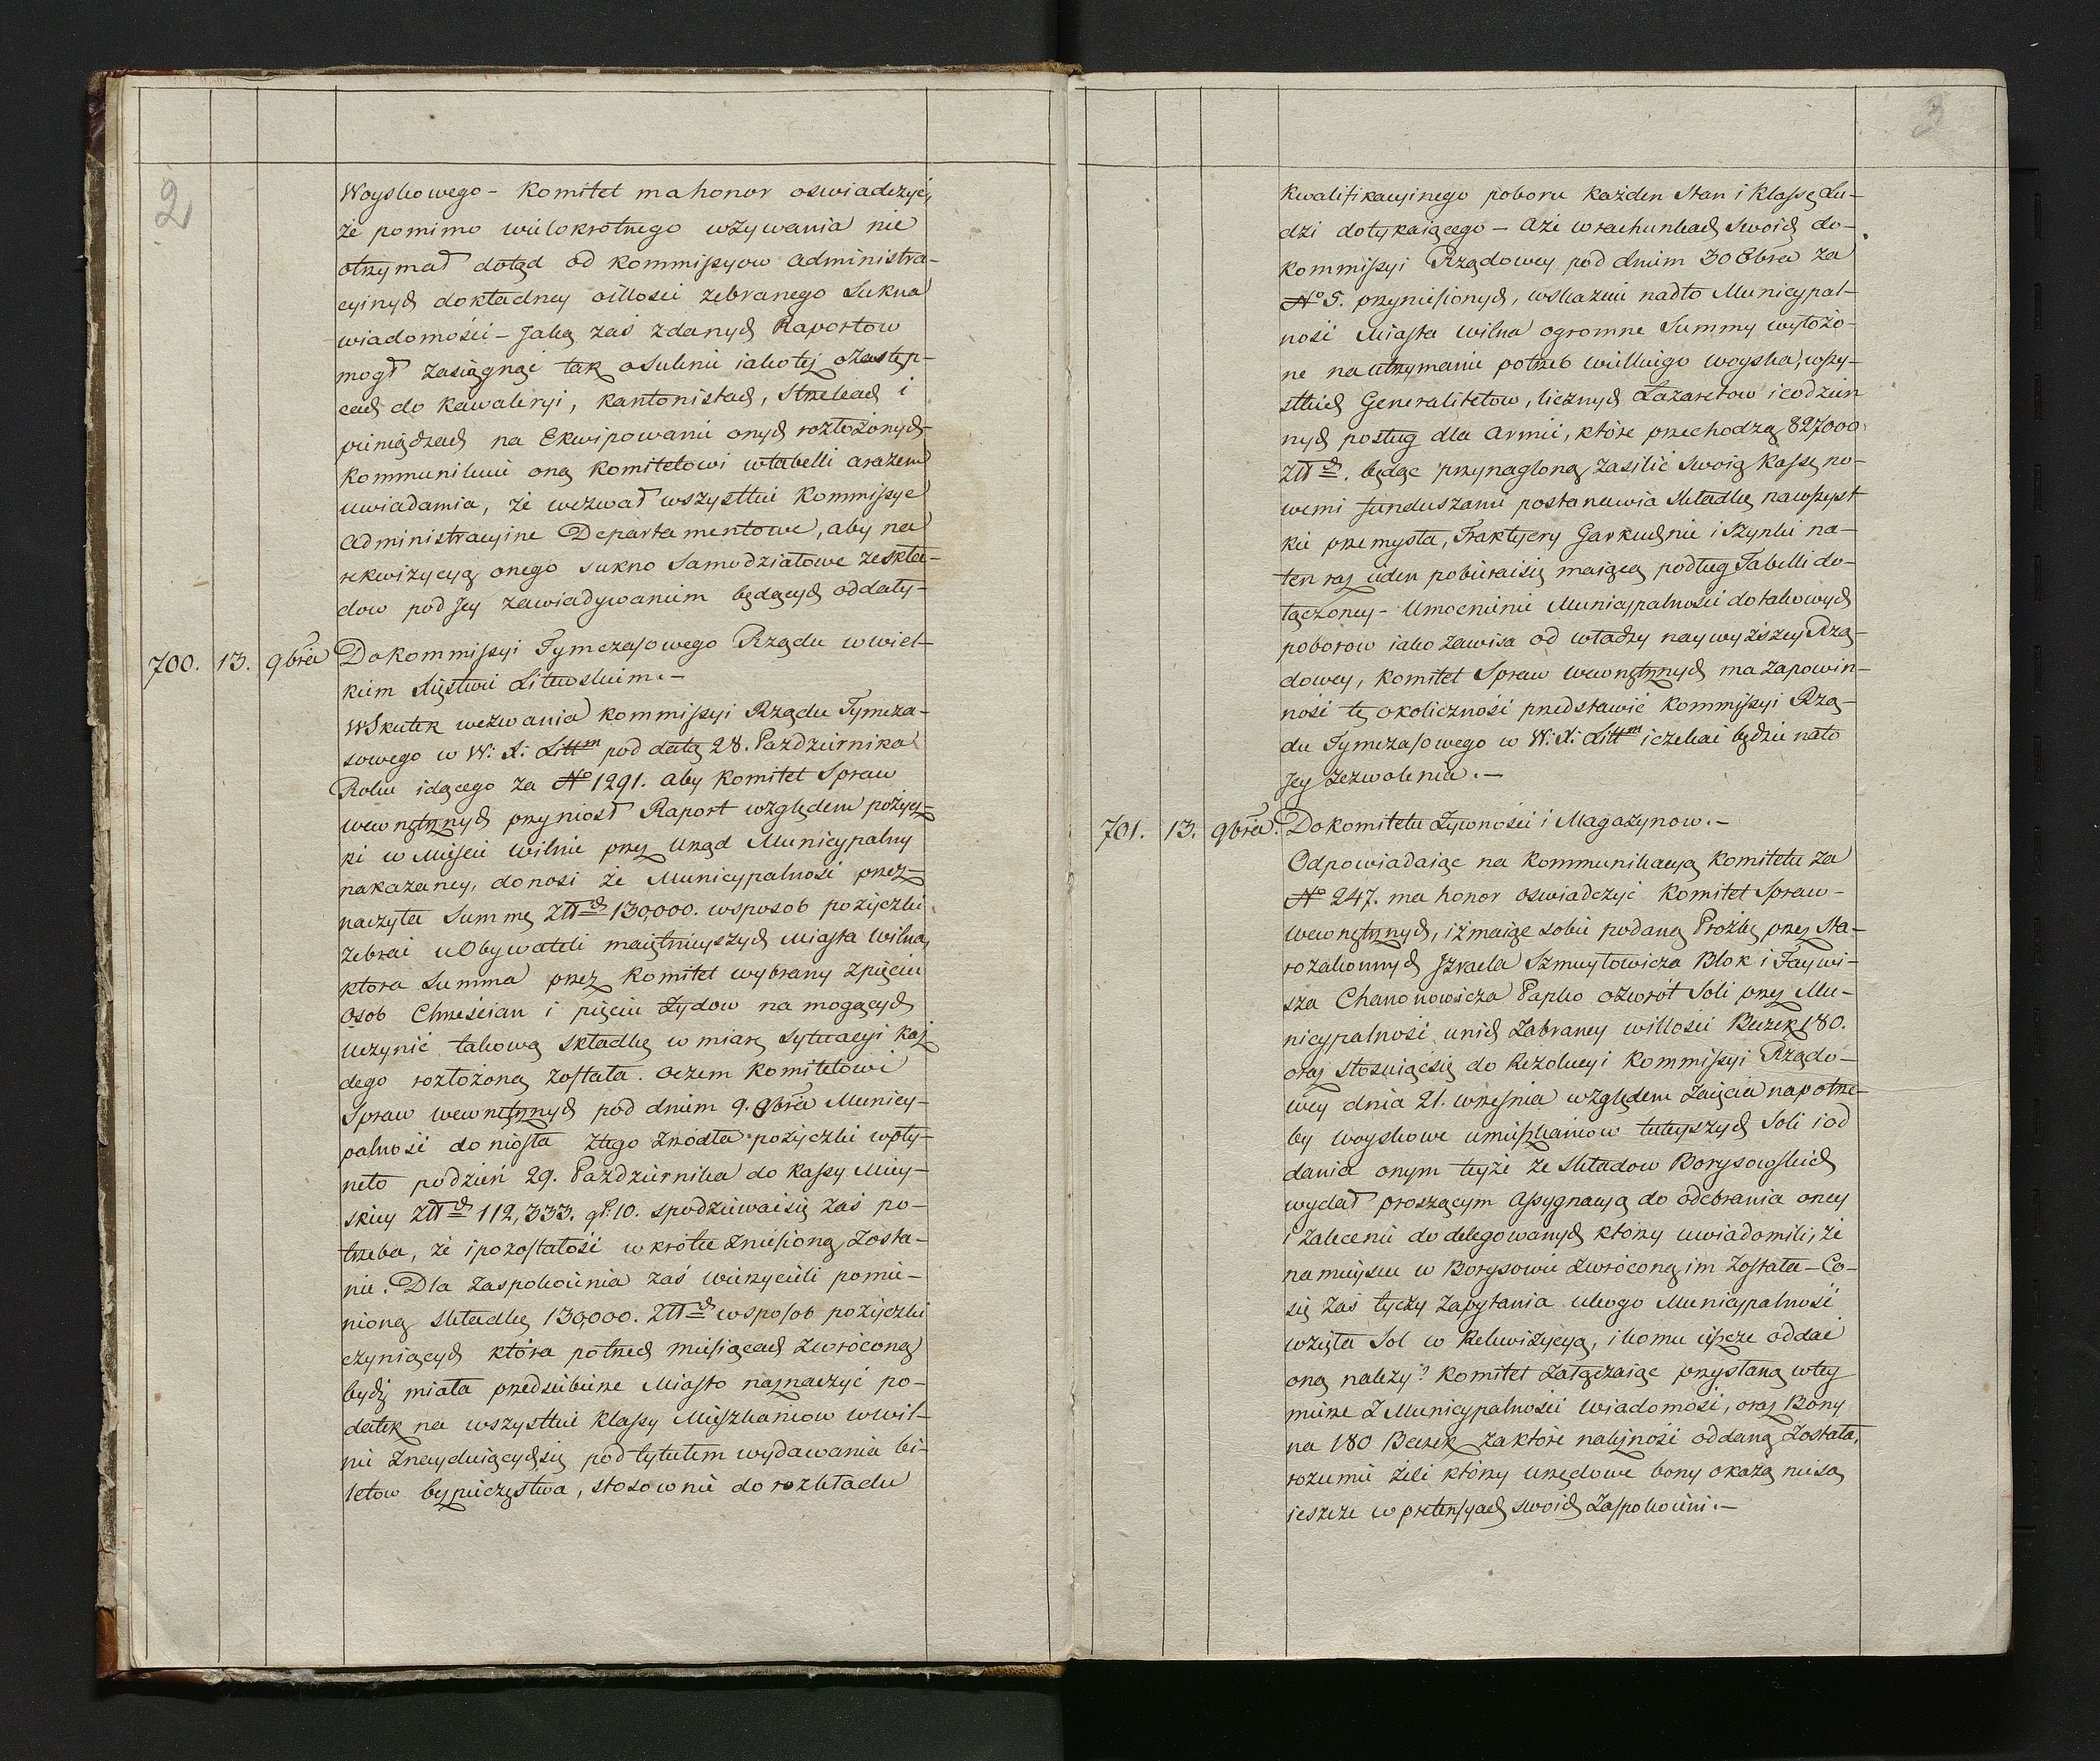 2
Woyskowego – Komitet ma honor oswiadczyć,
że pomimo wielokrotnego wzywania nie
otrzymał dotąd od Kommissyow administra-
cyinych dokładney o illosci zebranego Sukna
wiadomości – Jaką zaś zdanych Raportow
mogł zasiągnąć tak o Suknie iako tej o zastęp-
cach do Kawaleryi, Kantonistach, Strzelcach i
pieniądzach na Ekwipowanie onych rozłożonych
Kommunikuie oną Komitetowi w tabelli a razem
uwiadamia, że wezwał wszystkie Kommissye
administracyine Departamentowe, aby na
rekwizycyą onego sukno Samodziałowe ze skła-
dow pod Jey zawiadywaniem będących oddały –
700. 13. 9bra Do Kommissyi Tymczasowego Rządu w wiel-
kiem Xięstwie Litewskim. –
W Skutek wezwania Kommissyi Rządu Tymcza-
sowego w W: X: Littm pod datą 28. Pazdziernika
Roku idącego za No 1291. aby Komitet Spraw
wewnętrznych przyniosł Raport względem pożycz-
ki w Mieście Wilnie przez Urząd Municypalny
nakazaney, donosi że Municypalność prze-
naczyła Summę Złłch 130,000. w sposob pożyczki
zebrać u Obywateli maiętnieyszych Miasta Wilna,
ktora Summa przez Komitet wybrany z pięciu
Osob Chrześcian i pięciu Żydow na mogących
uczynić takową składkę w miarę Sytuacyi każ-
dego rozłożoną została. Oczem Komitetowi
Spraw wewnętrznych pod dniem 9. 9bra Municy-
palność doniosła z tego źrodła pożyczki wpły-
neło po dzień 29. Pazdziernika do Kassy Miey-
skiey Złłch 112,333. gr: 10. spodziewać się zaś po-
trzeba, że i pozostałość w krotce zniesioną zosta-
nie. Dla zaspokoienia zaś wierzycieli pomie-
nioną składkę 130,000. Złłch w sposob pożyczki
czyniących która po trzech miesiącach zwróconą
bydź miała przedsiebierze Miasto naznaczyć po-
datek na wszystkie klassy Mieszkańcow w Wil-
nie znayduiących się pod tytułem wydawania bi-
letow bezpieczęstwa, stosownie do rozkładu
3
Kwalifikacyinego poboru każden Stan i Klassę Lu-
dzi dotykaiącego – A że w rachunkach swoich do
Kommissyi Rządowey pod dniem 30 8bra za
No 5. przyniesionych, wskazuie nadto Municypal-
ność Miasta Wilna ogromne Summy wyłożo-
ne na utrzymanie potrzeb wielkiego woyska, wszy-
stkich Generalitetow, licznych Lazaretow i codzien
nych posług dla Armii, które przechodzą 827000.
Złłch. będąc przynagloną zasilić swoią Kassę no-
wemi funduszami postanawia składkę na wszyst
kie przemysła, Traktyery Garkuchnie i Szynki na-
ten raz ieden pobierać się maiącą podług Tabelli do-
łączoney – Umocnienie Municypalności do takowych
poborow iako zawisa od władzy naywyższey Rzą-
dowey, Komitet Spraw wewnętrznych ma za powin-
ność tę okoliczność przedstawić Kommissyi Rzą-
du Tymczasowego w W: X: Littm i czekać będzie na to
Jey Zezwolenia. –
701. 13. 9bra. Do Komitetu Żywności i Magazynow. –
Odpowiadaiąc na Kommunikacyą Komitetu za
No 247. ma honor oswiadczyć Komitet Spraw-
wewnętrznych, iż maiąc sobie podaną Prożbę przez Sta-
rozakonnych Izraela Szmuyłowicza Blok i Faywi-
sza Chanonowicza Papko o zwrót Soli przez Mu-
nicypalność u nich zabraney w illości Beczek 180.
oraz stosuiąc się do Rezolucyi Kommissyi Rządo-
wey dnia 21. września względem zaięcia na potrze-
by woyskowe u mieszkancow tuteyszych Soli i od
dania onym teyże ze składow Borysowskich
wydał proszącym Assygnacyą do odebrania oney
i zalecenie do delegowanych ktorzy uwiadomili, że
na mieyscu w Borysowie zwróconą im została – Co-
się zaś tyczy zapytania u kogo Municypalność
wzięła Sol w Rekwizycyą, i komu ieszcze oddać
oną należy? Komitet załączaiąc przysłaną w tey
mierze z Municypalności wiadomość, oraz Bony
na 180 Beczek za które należność oddaną została,
rozumie żeli ktorzy urzędowe bony okażą nie są
ieszcze w pretensyach swoich zaspokoieni. –